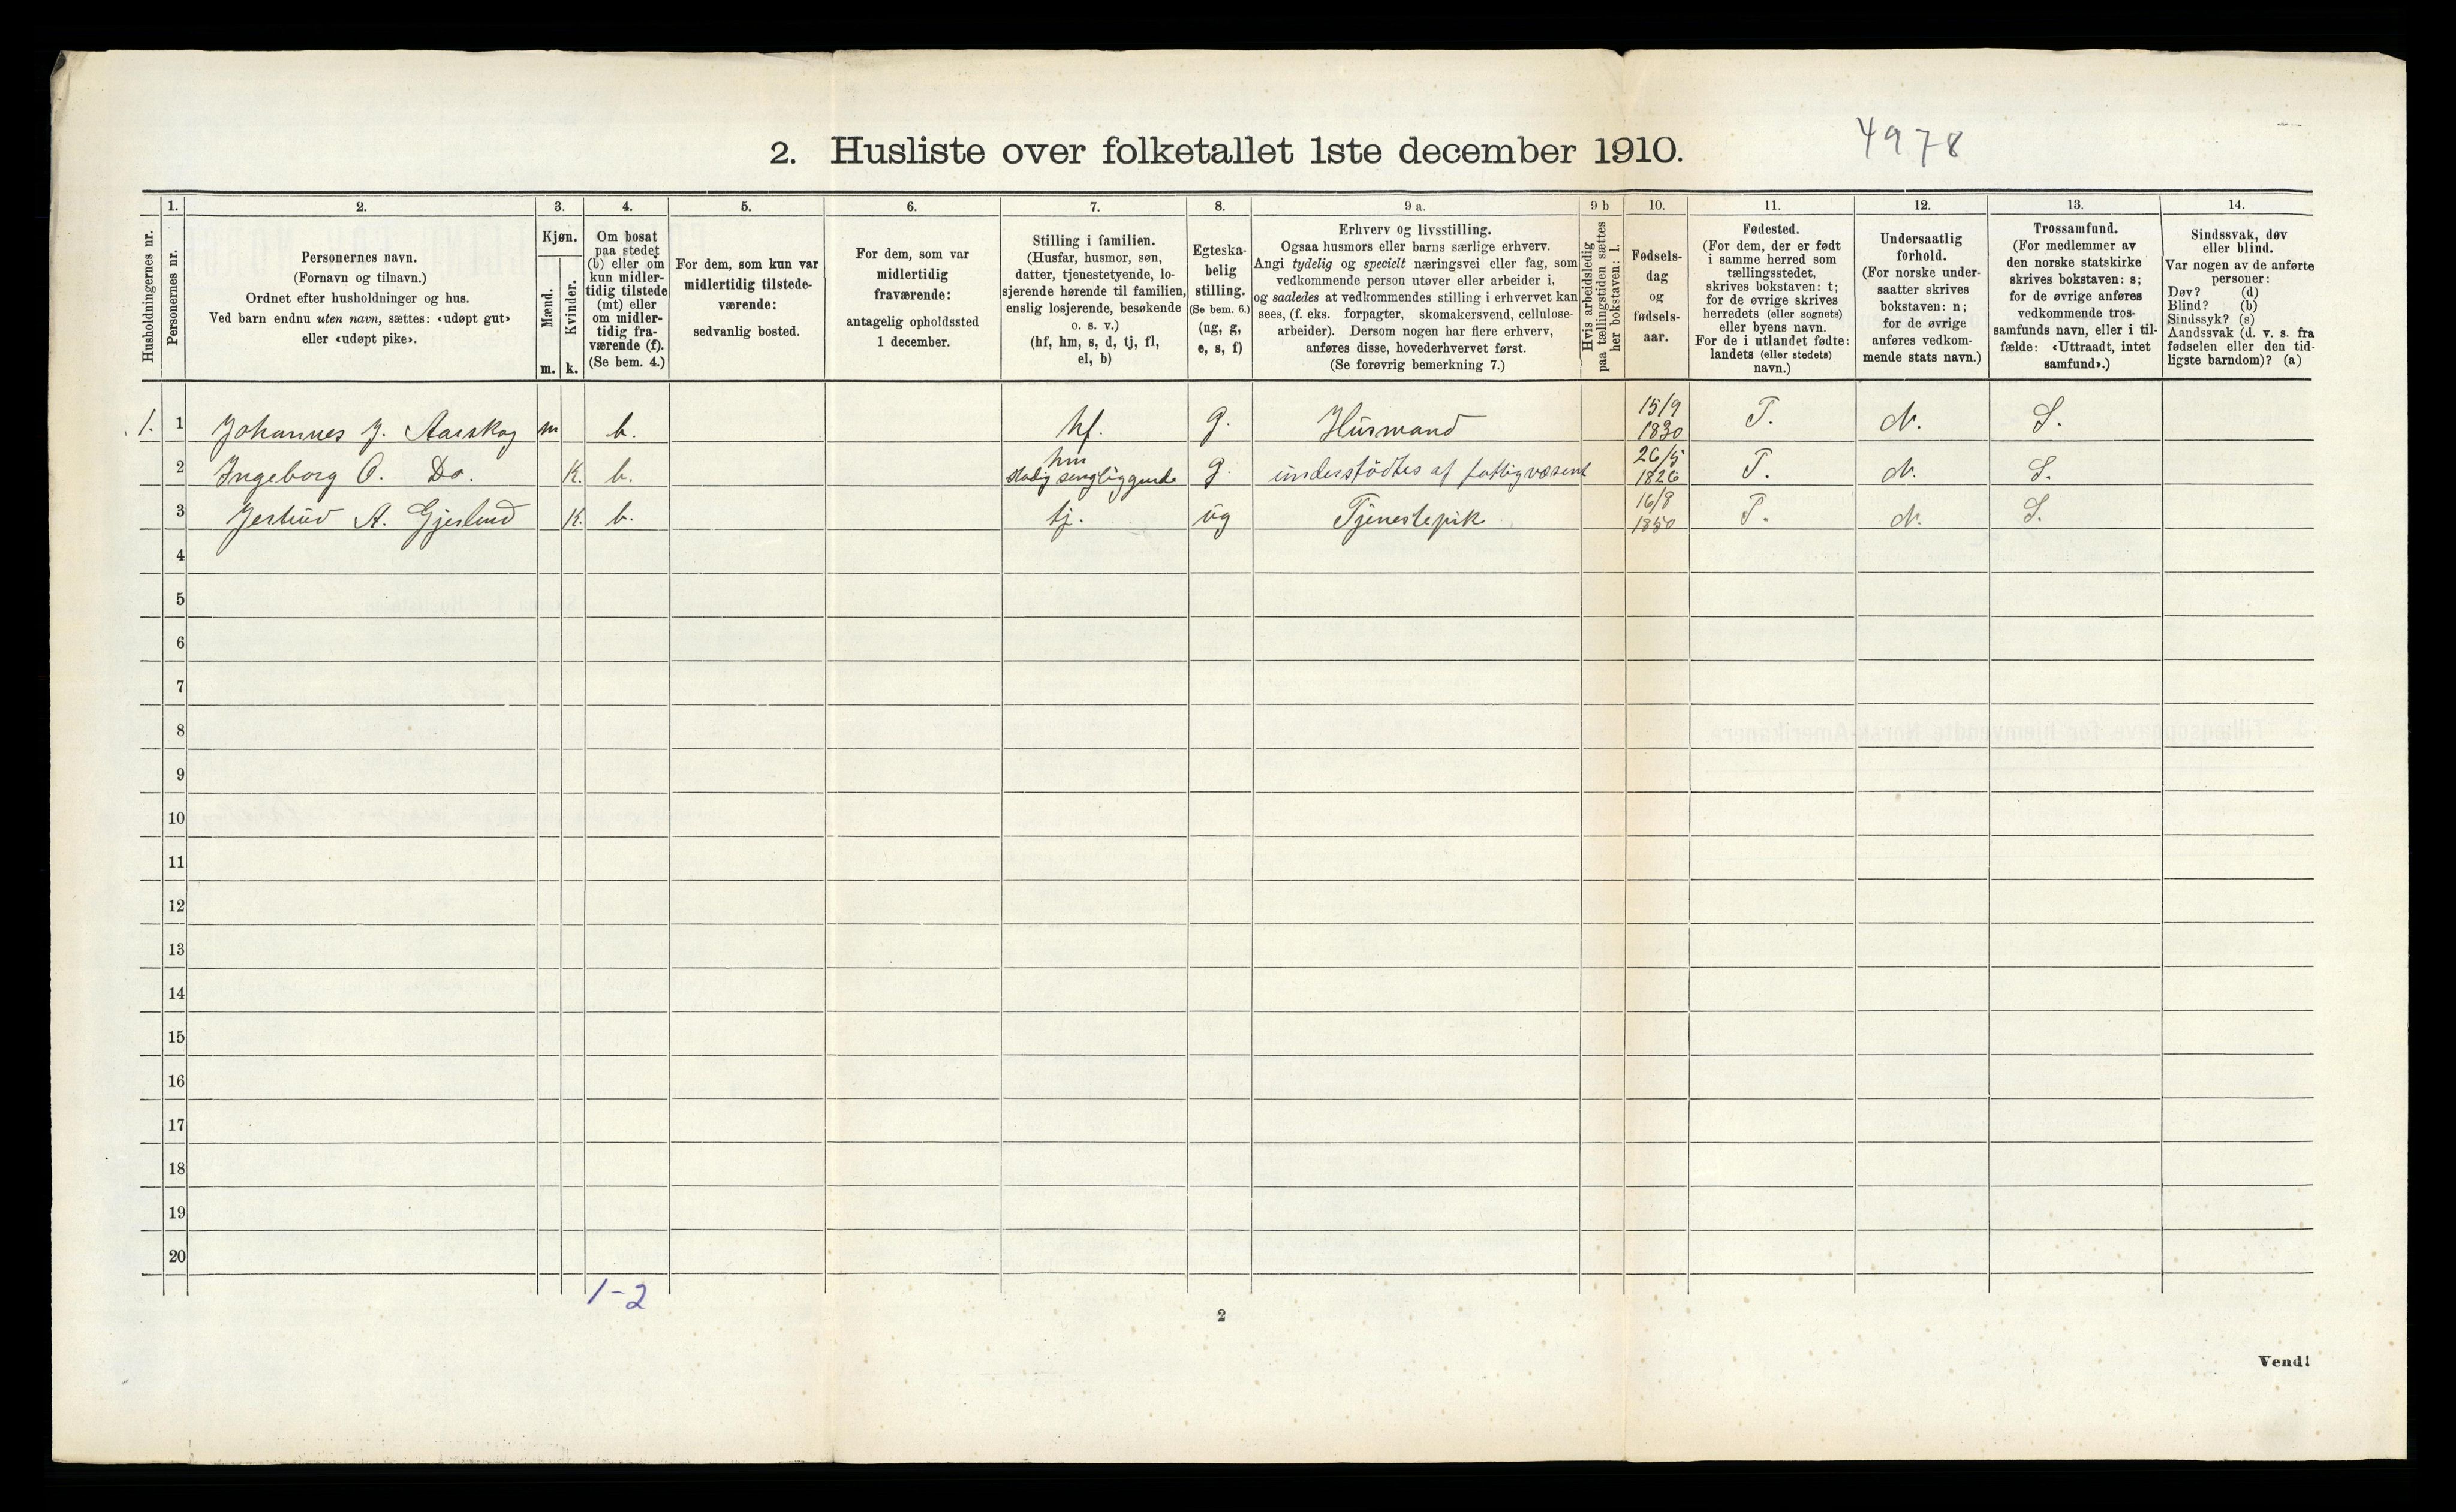 2. Husliste over folketallet 1ste december 1910.
4978
Husholdningernes nr.
1.
Personernes nr.
2.
Personernes navn.
(Fornavn og tilnavn.)
Ordnet efter husholdninger og hus.
Ved barn endnu uten navn, sættes: «udøpt gut»
eller «udøpt pike».
3.
Kjøn.
Mænd.
Kvinder.
m. k.
4.
Om bosat
paa stedet
(b) eller om
kun midler-
tidig tilstede
(mt) eller
om midler-
tidig fra-
værende (f).
(Se bem. 4.)
5.
For dem, som kun var
midlertidig tilstede-
værende:
sedvanlig bosted.
6.
For dem, som var
midlertidig
fraværende:
antagelig opholdssted
1 december.
7.
Stilling i familien.
(Husfar, husmor, søn,
datter, tjenestetyende, lo-
sjerende hørende til familien,
enslig losjerende, besøkende
o. s. v.)
(hf, hm, s, d, tj, fl,
el, b)
8.
Egteska-
belig
stilling.
(Se bem. 6.)
(ug, g,
e, s, f)
9 a.
Erhverv og livsstilling.
Ogsaa husmors eller barns særlige erhverv.
Angi tydelig og specielt næringsvei eller fag, som
vedkommende person utøver eller arbeider i,
og saaledes at vedkommendes stilling i erhvervet kan
sees, (f. eks. forpagter, skomakersvend, cellulose-
arbeider). Dersom nogen har flere erhverv,
anføres disse, hovederhvervet først.
(Se forøvrig bemerkning 7.)
9 b
Hvis arbeidsledig
paa tællingstiden sættes
her bokstaven: l.
10.
Fødsels-
dag
og
fødsels-
aar.
11.
Fødested.
(For dem, der er født
i samme herred som
tællingsstedet,
skrives bokstaven: t;
for de øvrige skrives
herredets (eller sognets)
eller byens navn.
For de i utlandet fødte:
landets (eller stedets)
navn.)
12.
Undersaatlig
forhold.
(For norske under-
saatter skrives
bokstaven: n;
for de øvrige
anføres vedkom-
mende stats navn.)
13.
Trossamfund.
(For medlemmer av
den norske statskirke
skrives bokstaven: s;
for de øvrige anføres
vedkommende tros-
samfunds navn, eller i til-
fælde: «Uttraadt, intet
samfund».)
14.
Sindssvak, døv
eller blind.
Var nogen av de anførte
personer:
Døv? (d)
Blind? (b)
Sindssyk? (s)
Aandssvak (d. v. s. fra
fødselen eller den tid-
ligste barndom)? (a)
1. 1 Johannes J. Aarskog m b. hf. g. Husmand 15/9 1830 T. N. S.
2 Ingeborg O. Do. K. b. hm stadig sengliggende g. understödtes af fattigvæsent 26/5 1826 T. N. S.
3 Jertrud A. Gjerlend K. b. tj. ug Tjenestepik 16/8 1850 T. N. S.
4
5
6
7
8
9
10
11
12
13
14
15
16
17
18
19
20
1-2
2
Vend!